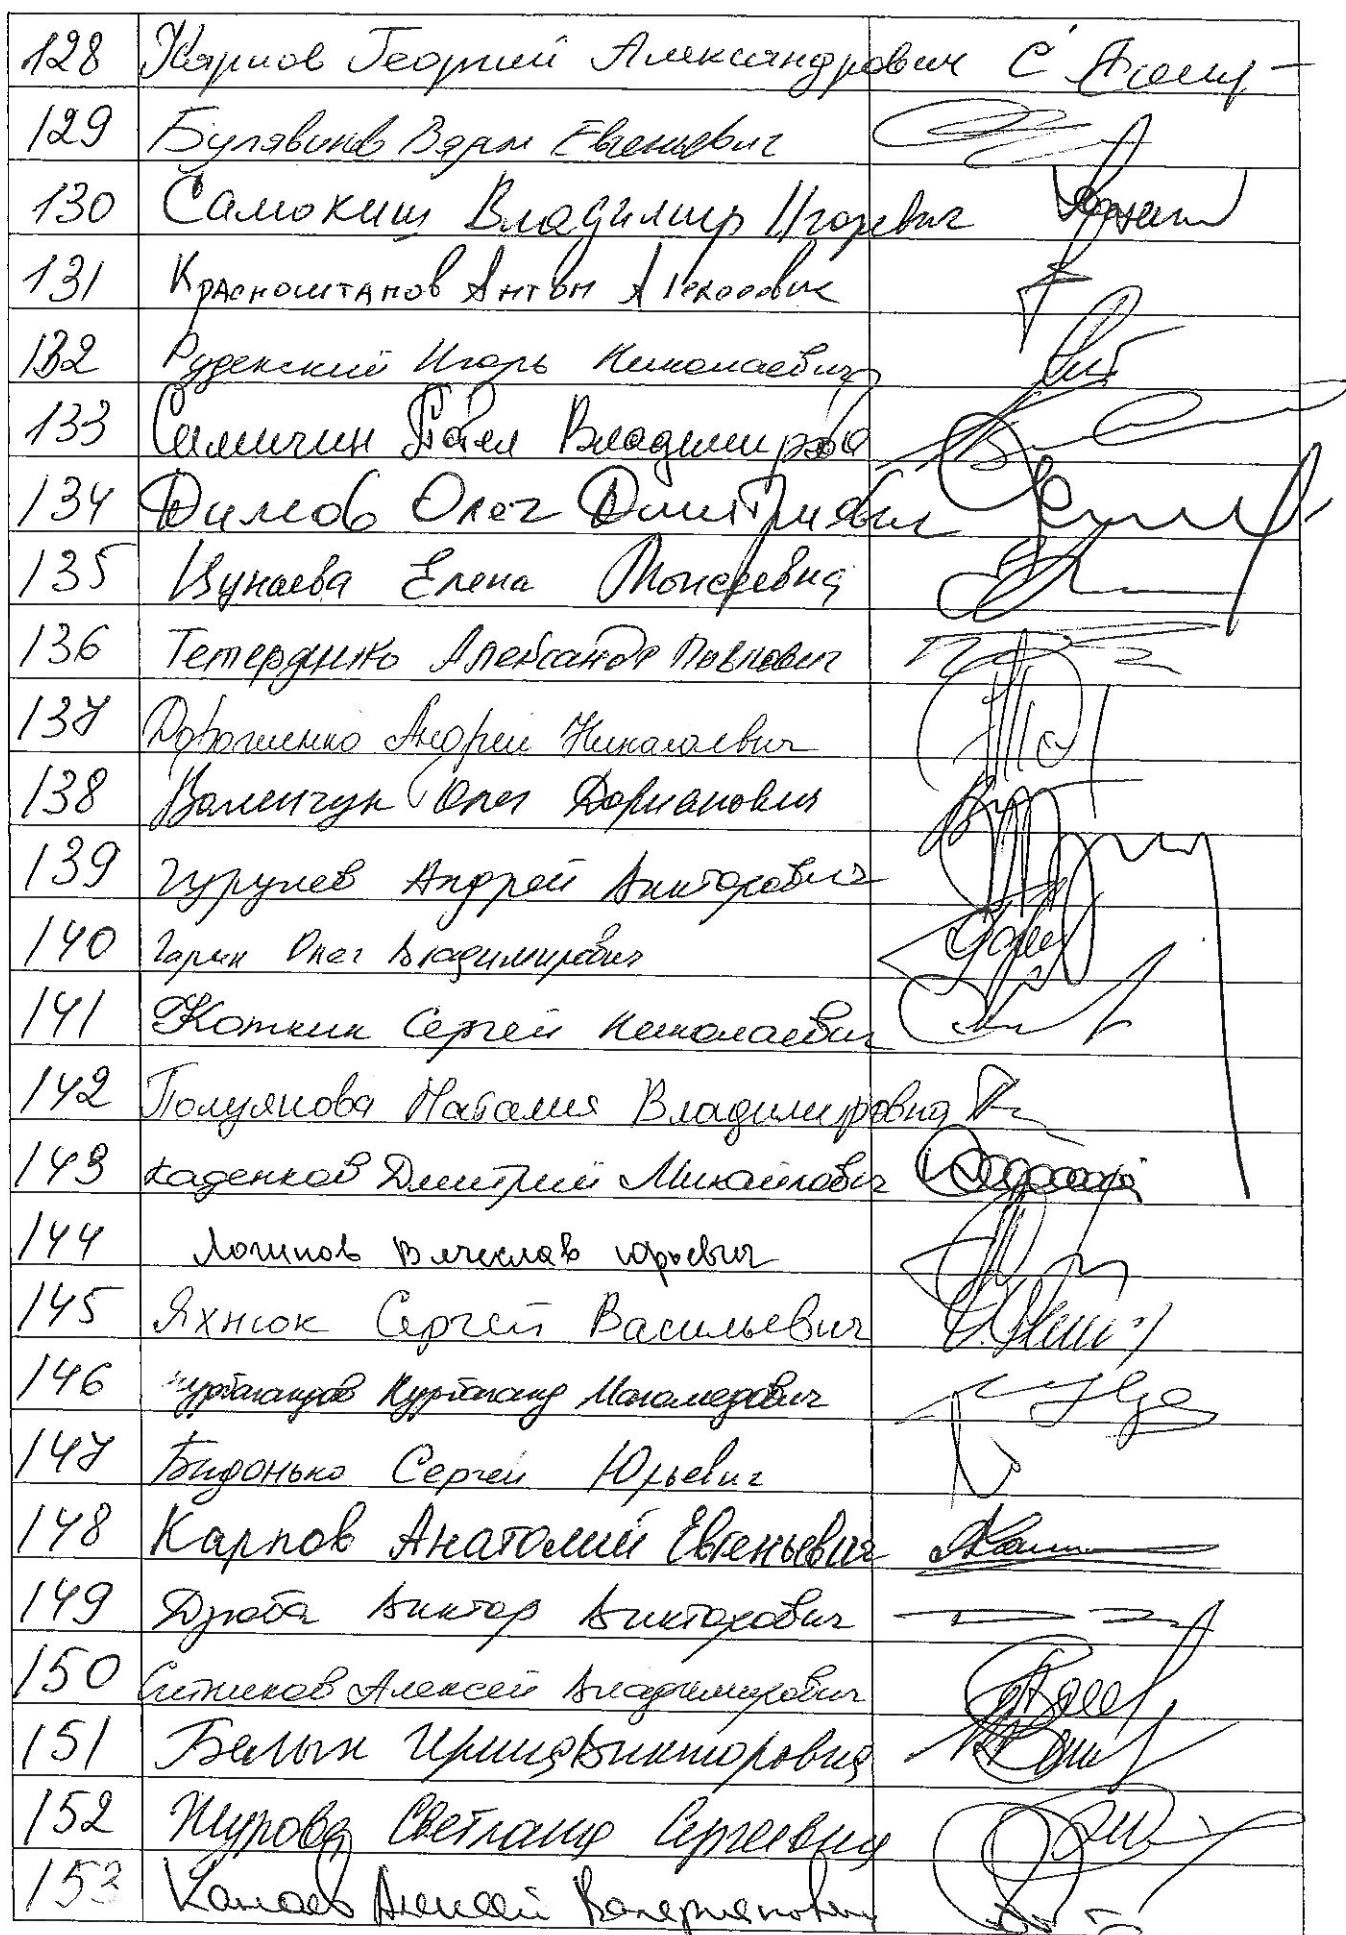 128 Карлов Георгий Александрович
129 Булавинов Вадим Евгеньевич
130 Самокиш Владимир Игоревич
131 Красноштанов Антон Алексеевич
132 Руденский Игорь Николаевич
133 Симигин Павел Владимиров
134 Димов Олег Дмитриевич
135 Цунаева Елена Моисеевна
136 Тетердинко Александр Павлович
137 Дорошенко Андрей Николаевич
138 Валенчук Олег Дорианович
139 Гурулев Андрей Викторович
140 Гарин Олег Владимирович
141 Коткин Сергей Николаевич
142 Полуянова Наталия Владимировна
143 Каденков Дмитрий Михайлович
144 Логинов Вячеслав Юрьевич
145 Яхнюк Сергей Васильевич
146 Курбанов Магомедович
147 Бидонько Сергей Юрьевич
148 Карпов Анатолий Евгеньевич
149 Дзюба Виктор Викторович
150 Ситников Алексей Владимирович
151 Белых Ирина Викторовна
152 Журова Светлана Сергеевна
153 Канаев Алексей Валерианович